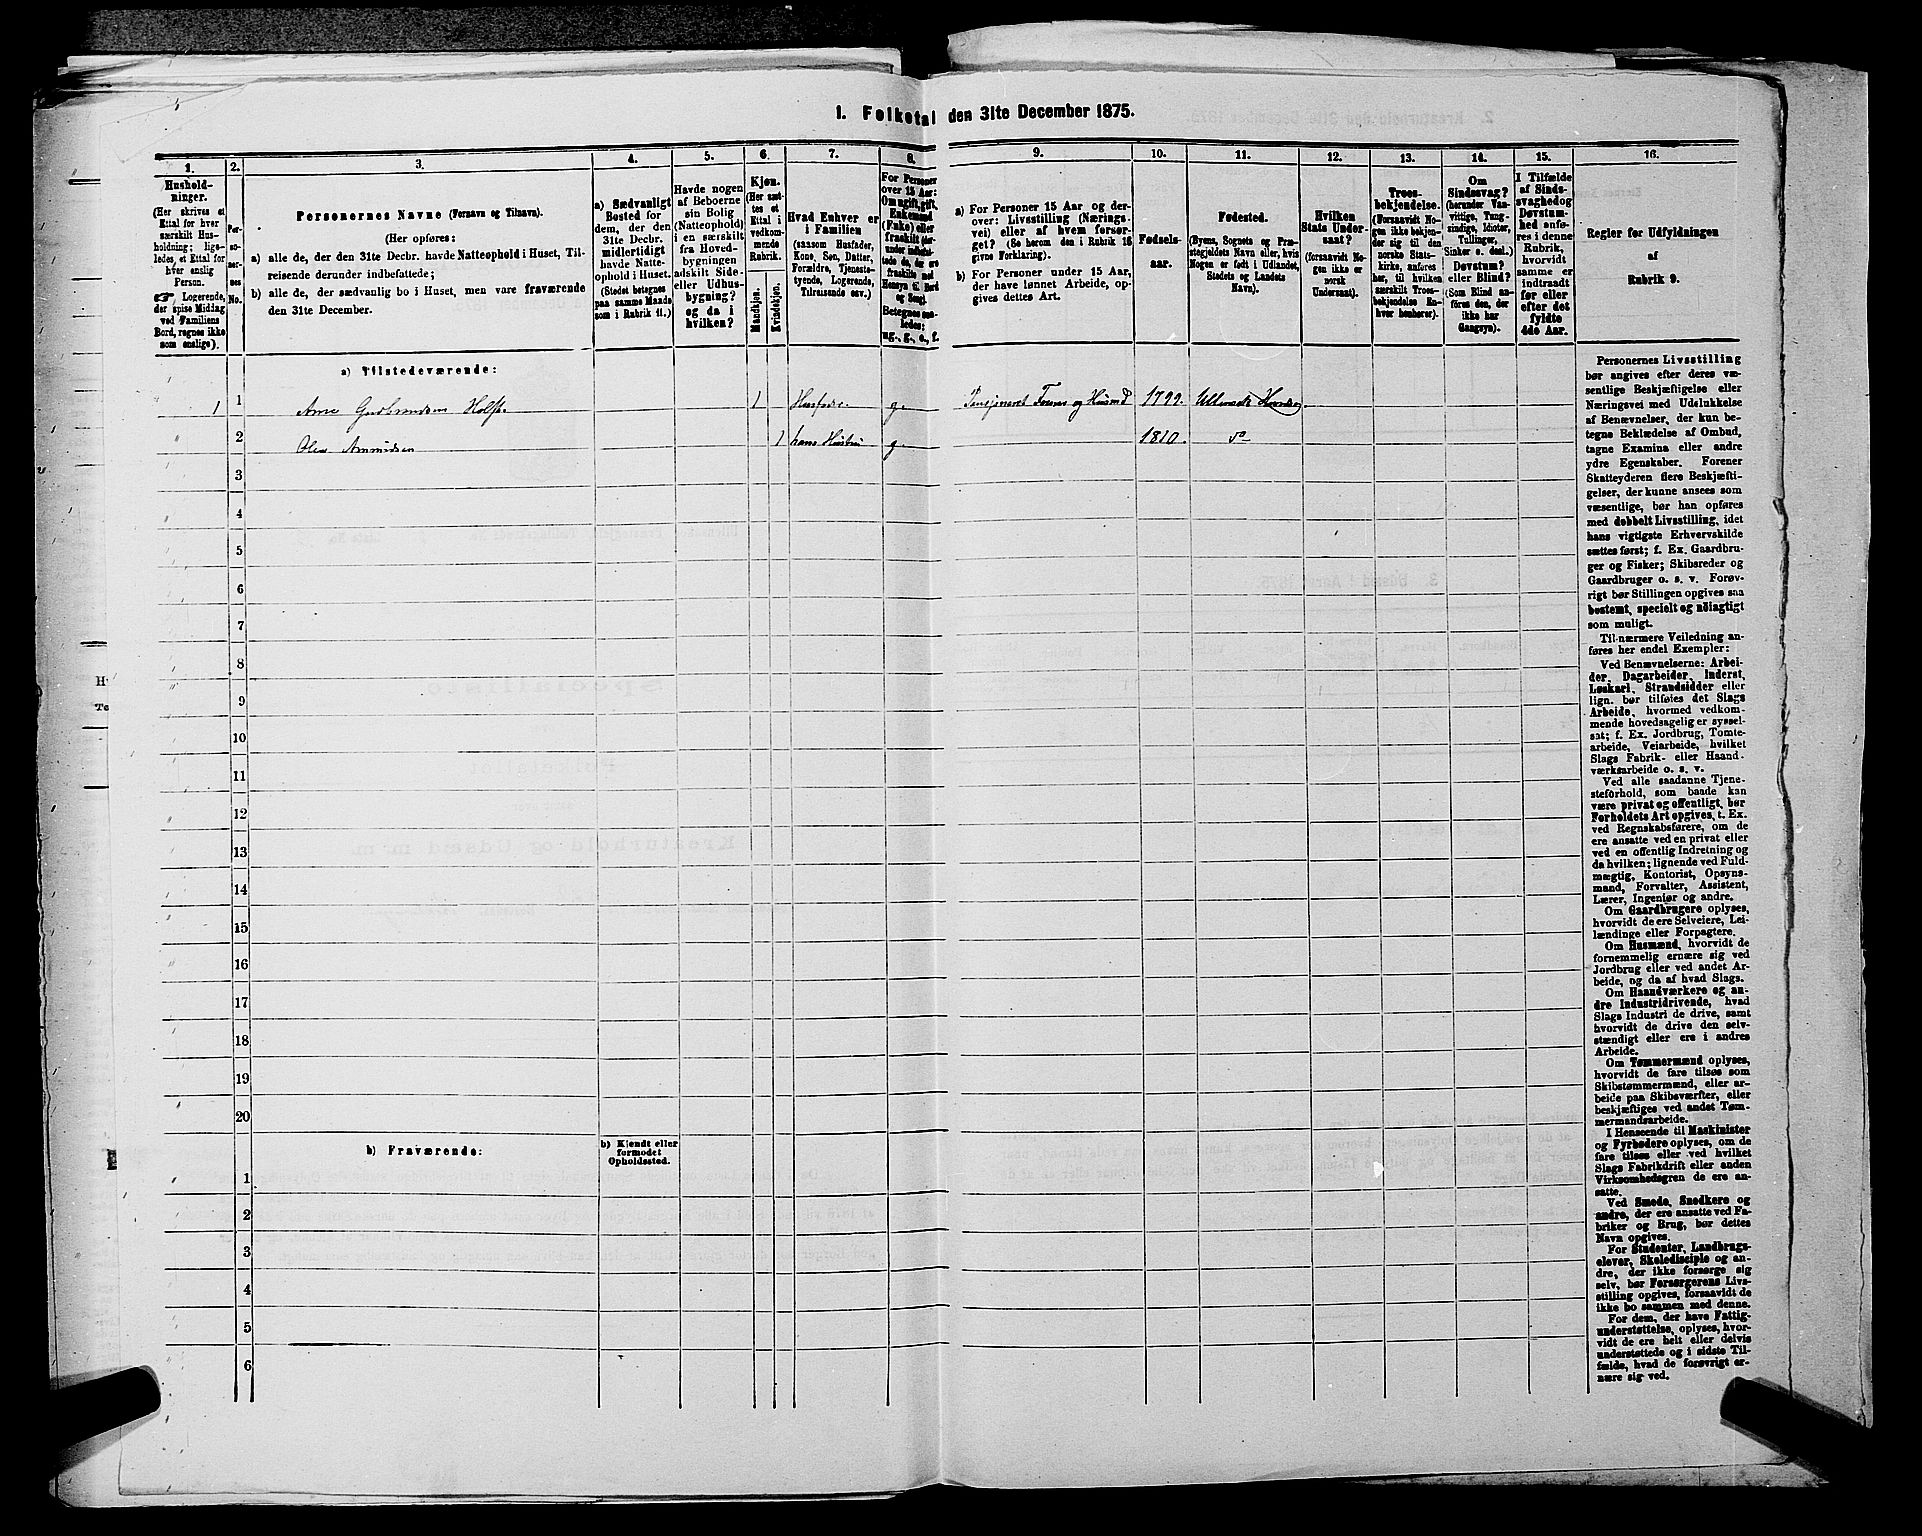 1. Folketal den 31te December 1875.
1.
Hushold-
ninger.
(Her skrives et
Ettal for hver
særskilt Hus-
holdning; lige-
ledes, et Ettal for
hver enslig
Person.
☞ Logerende,
der spise Middag
ved Familiens
Bord, regnes ikke
som enslige).
2.
Per-
so-
ner-
nes
No.
3.
Personernes Navne (Fornavn og Tilnavn).
(Her opføres:
a) alle de, der den 31te Decbr. havde Natteophold i Huset, Til-
reisende derunder indbefattede;
b) alle de, der sædvanlig bo i Huset, men vare fraværende
den 31te December.
4.
a) Sædvanligt
Bosted for
dem, der den
31te Decbr.
midlertidigt
havde Natte-
ophold i Huset.
(Stedet betegnes
paa samme Maade
som i Rubrik 11.)
5.
Havde nogen
af Beboerne
sin Bolig
(Natteophold)
i en særskilt
fra Hoved-
bygningen
adskilt Side-
eller Udhus-
bygning?
og da i
hvilken?
6.
Kjøn.
(Her sæt-
tes et
Ettal i
vedkom-
mende
Rubrik.
Mandkjøn.
Kvindekjøn.
7.
Hvad Enhver er
i Familien
(saasom Husfader,
Kone, Søn, Datter,
Forældre, Tjeneste-
tyende, Logerende,
Tilreisende osv.)
8.
For Personer
over 15 Aar:
Om ugift, gift,
Enkemand
(Enke) eller
fraskilt
Betegnes saa-
ledes:
ug., g., e., f.
9.
a) For Personer 15 Aar og der-
over: Livsstilling (Nærings-
vei) eller af hvem forsør-
get? (Se herom den i Rubrik 16
givne Forklaring).
b) For Personer under 15 Aar,
der have lønnet Arbeide, op-
gives dettes Art.
10.
Fødsels-
aar.
11.
Fødested.
(Byens, Sognets og Præ-
stegjeldets Navn eller, hvis
Nogen er født i Udlandet,
Stedets og Landets
Navn).
12.
Hvilken
Stats Under-
saat?
(forsaavidt No-
gen ikke er
norsk
Undersaat).
13.
Troes-
bekjendelse.
(Forsaavidt No-
gen ikke bekjen-
der sig til den
norske Stats-
kirke, anføres
her, til hvilken
særskilt Troes-
bekjendelse En-
hver henhører).
14.
Om
Sindssvag?
(herunder Van-
vittige, Tung-
sindige, Idioter,
Tullinger,
Sinker o. desl.).
Døvstum?
eller Blind?
(Som Blind an-
føres den, der
ikke har
Gangsyn).
15.
I Tilfælde
af Sinds-
svaghed og
Døvstum-
hed anfø-
res i denne
Rubrik,
hvorvidt
samme er
indtraadt
før eller
efter det
fyldte
4de Aar.
16.
Regler for Udfyldningen
af
Rubrik 9.
a) Tilstedeværende:
1 1 Arne Gudbrandsen Holst. 1 Husfader g. Pensjoneret og Husmd 1799. Ullensaker
2 Olea Amundsen 1 hans Hustru g. 1810. do
3
4
5
6
7
8
9
10
11
12
13
14
15
16
17
18
19
20
b) Fraværende:
b) Kjendt eller
formodet
Opholdssted.
1
2
3
4
5
6
Personernes Livsstilling
bør angives efter deres væ-
sentlige Beskjæftigelse eller
Næringsvei med Udelukkelse
af Benævnelser, der kun be-
tegne Beklædelse af Ombud,
tagne Examina eller andre
ydre Egenskaber. Forener
Skatteyderen flere Beskjæfti-
gelser, der kunne ansees som
væsentlige, bør han opføres
med dobbelt Livsstilling, idet
hans vigtigste Erhvervskilde
sættes først; f. Ex. Gaardbru-
ger og Fisker; Skibsreder og
Gaardbruger o. s. v. Forøv-
rigt bør Stillingen opgives saa
bestemt, specielt og nøiagtigt
som muligt.
Til nærmere Veiledning an-
føres her endel Exempler:
Ved Benævnelserne: Arbei-
der, Dagarbeider, Inderst,
Løskarl, Strandsidder eller
lign. bør tilføies det Slags
Arbeide, hvormed vedkom-
mende hovedsagelig er syssel-
sat; f. Ex. Jordbrug, Tomte-
arbeide, Veiarbeide, hvilket
Slags Fabrik- eller Haand-
værksarbeide o. s. v.
Ved alle saadanne Tjene-
steforhold, som baade kan
være privat og offentligt, bør
Forholdets Art opgives, t. Ex.
ved Regnskabsførere, om de
ere ansatte ved en privat eller
ved en offentlig Indretning og
da hvilken; lignende ved Fuld-
mægtig, Kontorist, Opsyns-
mand, Forvalter, Assistent,
Lærer, Ingeniør og andre.
Om Gaardbrugere oplyses,
hvorvidt de ere Selveiere, Lei-
lændinge eller Forpagtere.
Om Husmænd, hvorvidt de
fornemmelig ernære sig ved
Jordbrug eller ved andet Ar-
beide, og da af hvad Slags.
Om Haandværkere og an-
dre Industridrivende, hvad
Slags Industri de drive, samt
hvorvidt de drive den selv-
stændigt eller ere i andres
Arbeide.
Om Tømmermænd oplyses,
hvorvidt de fare tilsøs som
Skibstømmermænd, eller ar-
beide paa Skibsværfter, eller
beskjæftiges ved andet Tøm-
mermandsarbeide.
I Henseende til Maskinister
og Fyrbødere oplyses, om de
fare tilsøs eller ved hvilket
Slags Fabrikdrift eller anden
Virksomhedsgren de ere an-
satte.
Ved Smede, Snedkere og
andre, der ere ansatte ved Fa-
briker og Brug, bør dettes
Navn opgives.
For Studenter, Landbrugs-
elever, Skoledisciple og an-
dre, der ikke forsørge sig
selv, bør Forsørgerens Livs-
stilling opgives, forsaavidt de
ikke bo sammen med denne.
For dem, der have Fattig-
understøttelse, oplyses, hvor-
vidt de ere helt eller delvis
understøttede og i sidste Til-
fælde, hvad de forøvrigt er-
nære sig ved.